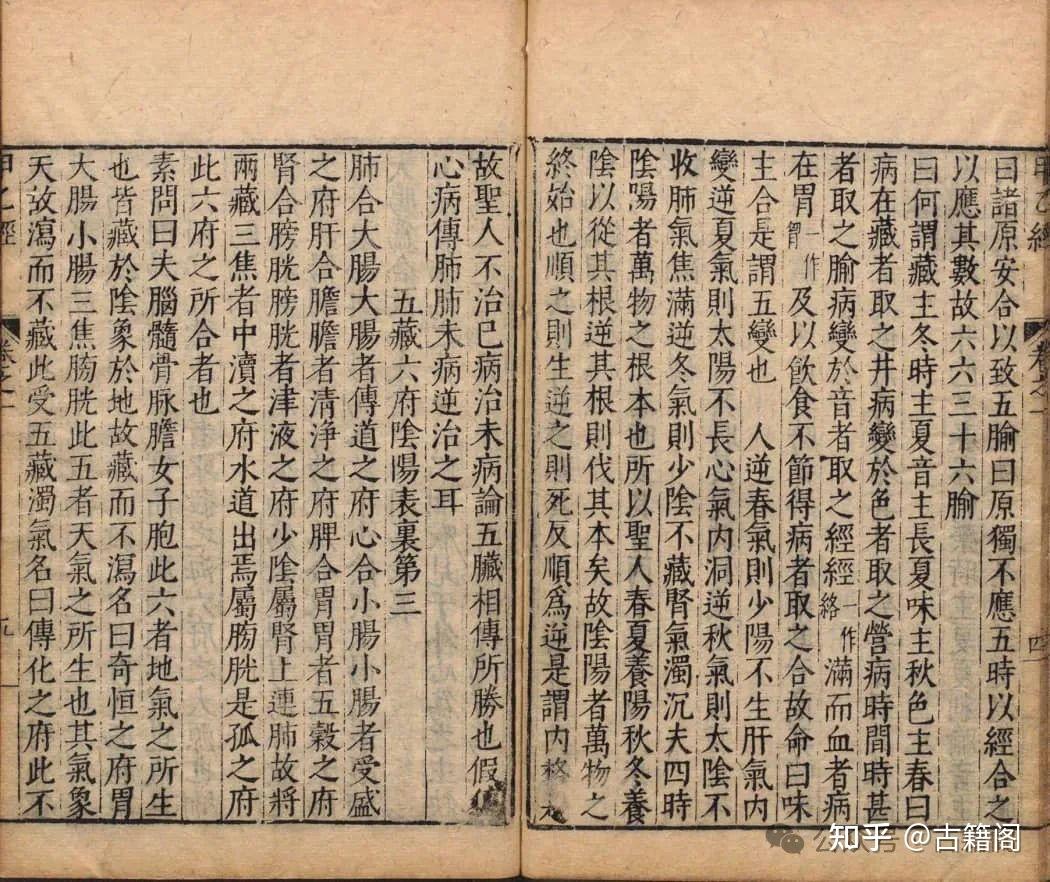 甲乙經
卷之一
四
曰諸原安合以致五腧曰原獨不應五時以經合之
以應其數故六六三十六腧
曰何謂藏主冬時主夏音主長夏味主秋色主春曰
病在藏者取之井病變於色者取之滎病時間時甚
者取之腧病變於音者取之經經一作絡滿而血者病
在胃一作胷及以飲食不節得病者取之合故命曰味
主合是謂五變也 人逆春氣則少陽不生肝氣內
變逆夏氣則太陽不長心氣內洞逆秋氣則太陰不
收肺氣焦滿逆冬氣則少陰不藏腎氣濁沉夫四時
陰陽者萬物之根本也所以聖人春夏養陽秋冬養
陰以從其根逆其根則伐其本矣故陰陽者萬物之
終始也順之則生逆之則死反順爲逆是謂內格
故聖人不治已病治未病論五臟相傳所勝也假
心病傳肺肺未病逆治之耳
五藏六府陰陽表裏第三
肺合大腸大腸者傳道之府心合小腸小腸者受盛
之府肝合膽膽者清淨之府脾合胃胃者五穀之府
腎合膀胱膀胱者津液之府少陰屬腎上連肺故將
兩藏三焦者中瀆之府水道出焉屬膀胱是孤之府
此六府之所合者也
素問曰夫腦髓骨脉膽女子胞此六者地氣之所生
也皆藏於陰象於地故藏而不瀉名曰奇恒之府胃
大腸小腸三焦膀胱此五者天氣之所生也其氣象
天故瀉而不藏此受五藏濁氣名曰傳化之府此不
甲乙經
卷之一
九
知乎 @古籍阁